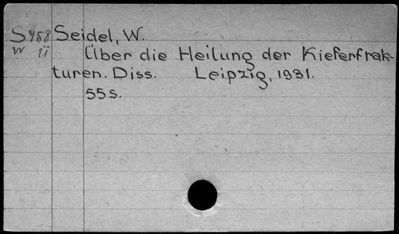 S458 Seidel, W.
W ü Über die Heilung der Kieferfrak-
turen. Diss. Leipzig, 1931.
55 s.